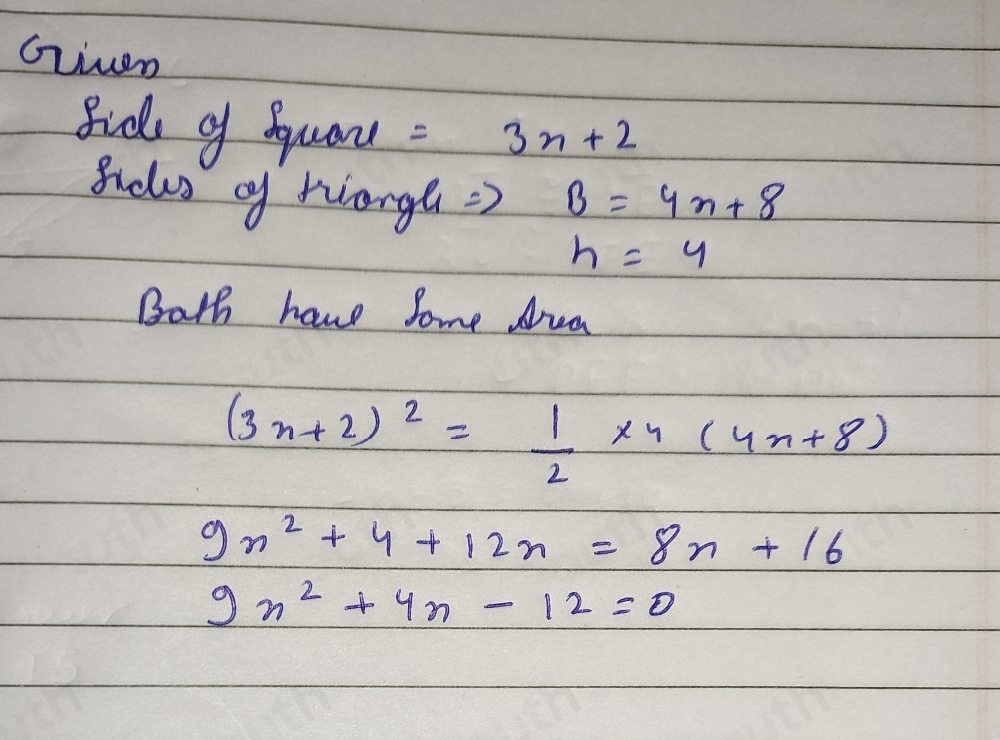 Given
Side of Square = 3x+2
Sides of triangle => B = 4x+8
h = 4
Both have Same Area
(3x+2)² = 1/2 ×4 (4x+8)
9x² + 4 + 12x = 8x + 16
9x² + 4x - 12 = 0